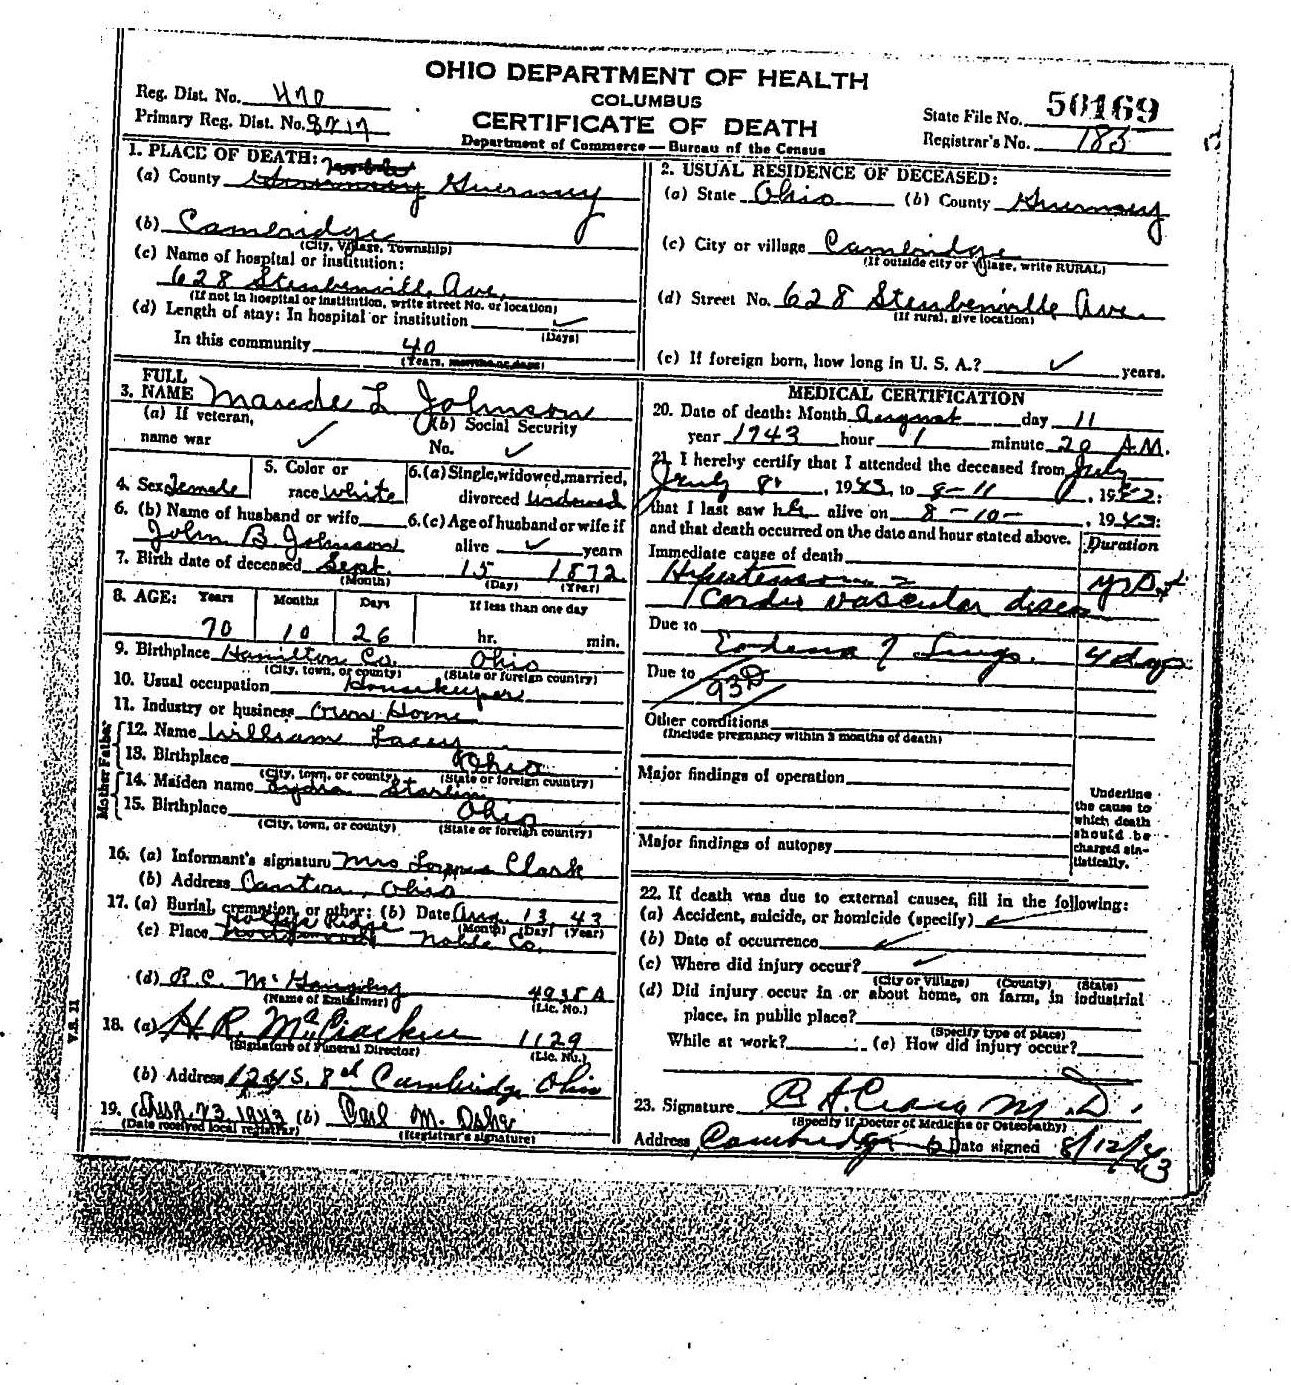 OHIO DEPARTMENT OF HEALTH
COLUMBUS
CERTIFICATE OF DEATH
Department of Commerce — Bureau of the Census
Reg. Dist. No. 470
Primary Reg. Dist. No. 8217
State File No. 50169
Registrar's No. 185
1. PLACE OF DEATH:
(a) County Guernsey
(b) Cambridge
(City, Village, Township)
(c) Name of hospital or institution:
628 Steubenville Ave.
(If not in hospital or institution, write street No. or location)
(d) Length of stay: In hospital or institution ✓
(Days)
In this community 40
(Years, months or days)
2. USUAL RESIDENCE OF DECEASED:
(a) State Ohio (b) County Guernsey
(c) City or village Cambridge
(If outside city or village, write RURAL)
(d) Street No. 628 Steubenville Ave.
(If rural, give location)
(e) If foreign born, how long in U. S. A.? ✓ years.
3. FULL NAME Maude L Johnson
(a) If veteran, name war ✓
(b) Social Security No. ✓
4. Sex Female
5. Color or race White
6. (a) Single, widowed, married, divorced Widowed
6. (b) Name of husband or wife
John B. Johnson
6. (c) Age of husband or wife if alive ✓ years
7. Birth date of deceased Sept. 15 1872
(Month) (Day) (Year)
8. AGE: Years Months Days If less than one day
70 10 26 hr. min.
9. Birthplace Hamilton Co. Ohio
(City, town, or county) (State or foreign country)
10. Usual occupation Housekeeper
11. Industry or business Own Home
Father
12. Name William Lacey
13. Birthplace Ohio
(City, town, or county) (State or foreign country)
Mother
14. Maiden name Lydia
15. Birthplace Ohio
(City, town, or county) (State or foreign country)
16. (a) Informant's signature Mrs Clark
(b) Address Canton, Ohio
17. (a) Burial, cremation, or other: (b) Date Aug. 13 43
(Month) (Day) (Year)
(c) Place Ridge Noble Co.
(d) R.C. 4935 A
(Name of Embalmer) (Lic. No.)
18. (a) H R. McCracken 1129
(Signature of Funeral Director) (Lic. No.)
(b) Address S. 8th Cambridge Ohio
19. (a) 1943 (b) Carl M.
(Date received local registrar) (Registrar's signature)
V.S. 11
MEDICAL CERTIFICATION
20. Date of death: Month August day 11
year 1943 hour 1 minute 20 A.M.
21. I hereby certify that I attended the deceased from July
July 8, 1943, to 8-11, 1943:
that I last saw her alive on 8-10-, 1943:
and that death occurred on the date and hour stated above.
Duration
Immediate cause of death
Hypertension
Cardio vascular disease
Due to
Edema of Lungs. 4 dys
Due to
93D
Other conditions
(Include pregnancy within 3 months of death)
Major findings of operation
Major findings of autopsy
Underline the cause to which death should be charged statistically.
22. If death was due to external causes, fill in the following:
(a) Accident, suicide, or homicide (specify) ✓
(b) Date of occurrence ✓
(c) Where did injury occur? ✓
(City or Village) (County) (State)
(d) Did injury occur in or about home, on farm, in industrial
place, in public place?
(Specify type of place)
While at work? (e) How did injury occur?
23. Signature A. Craig M.D.
(Specify if Doctor of Medicine or Osteopathy)
Address Cambridge O Date signed 8/12/43